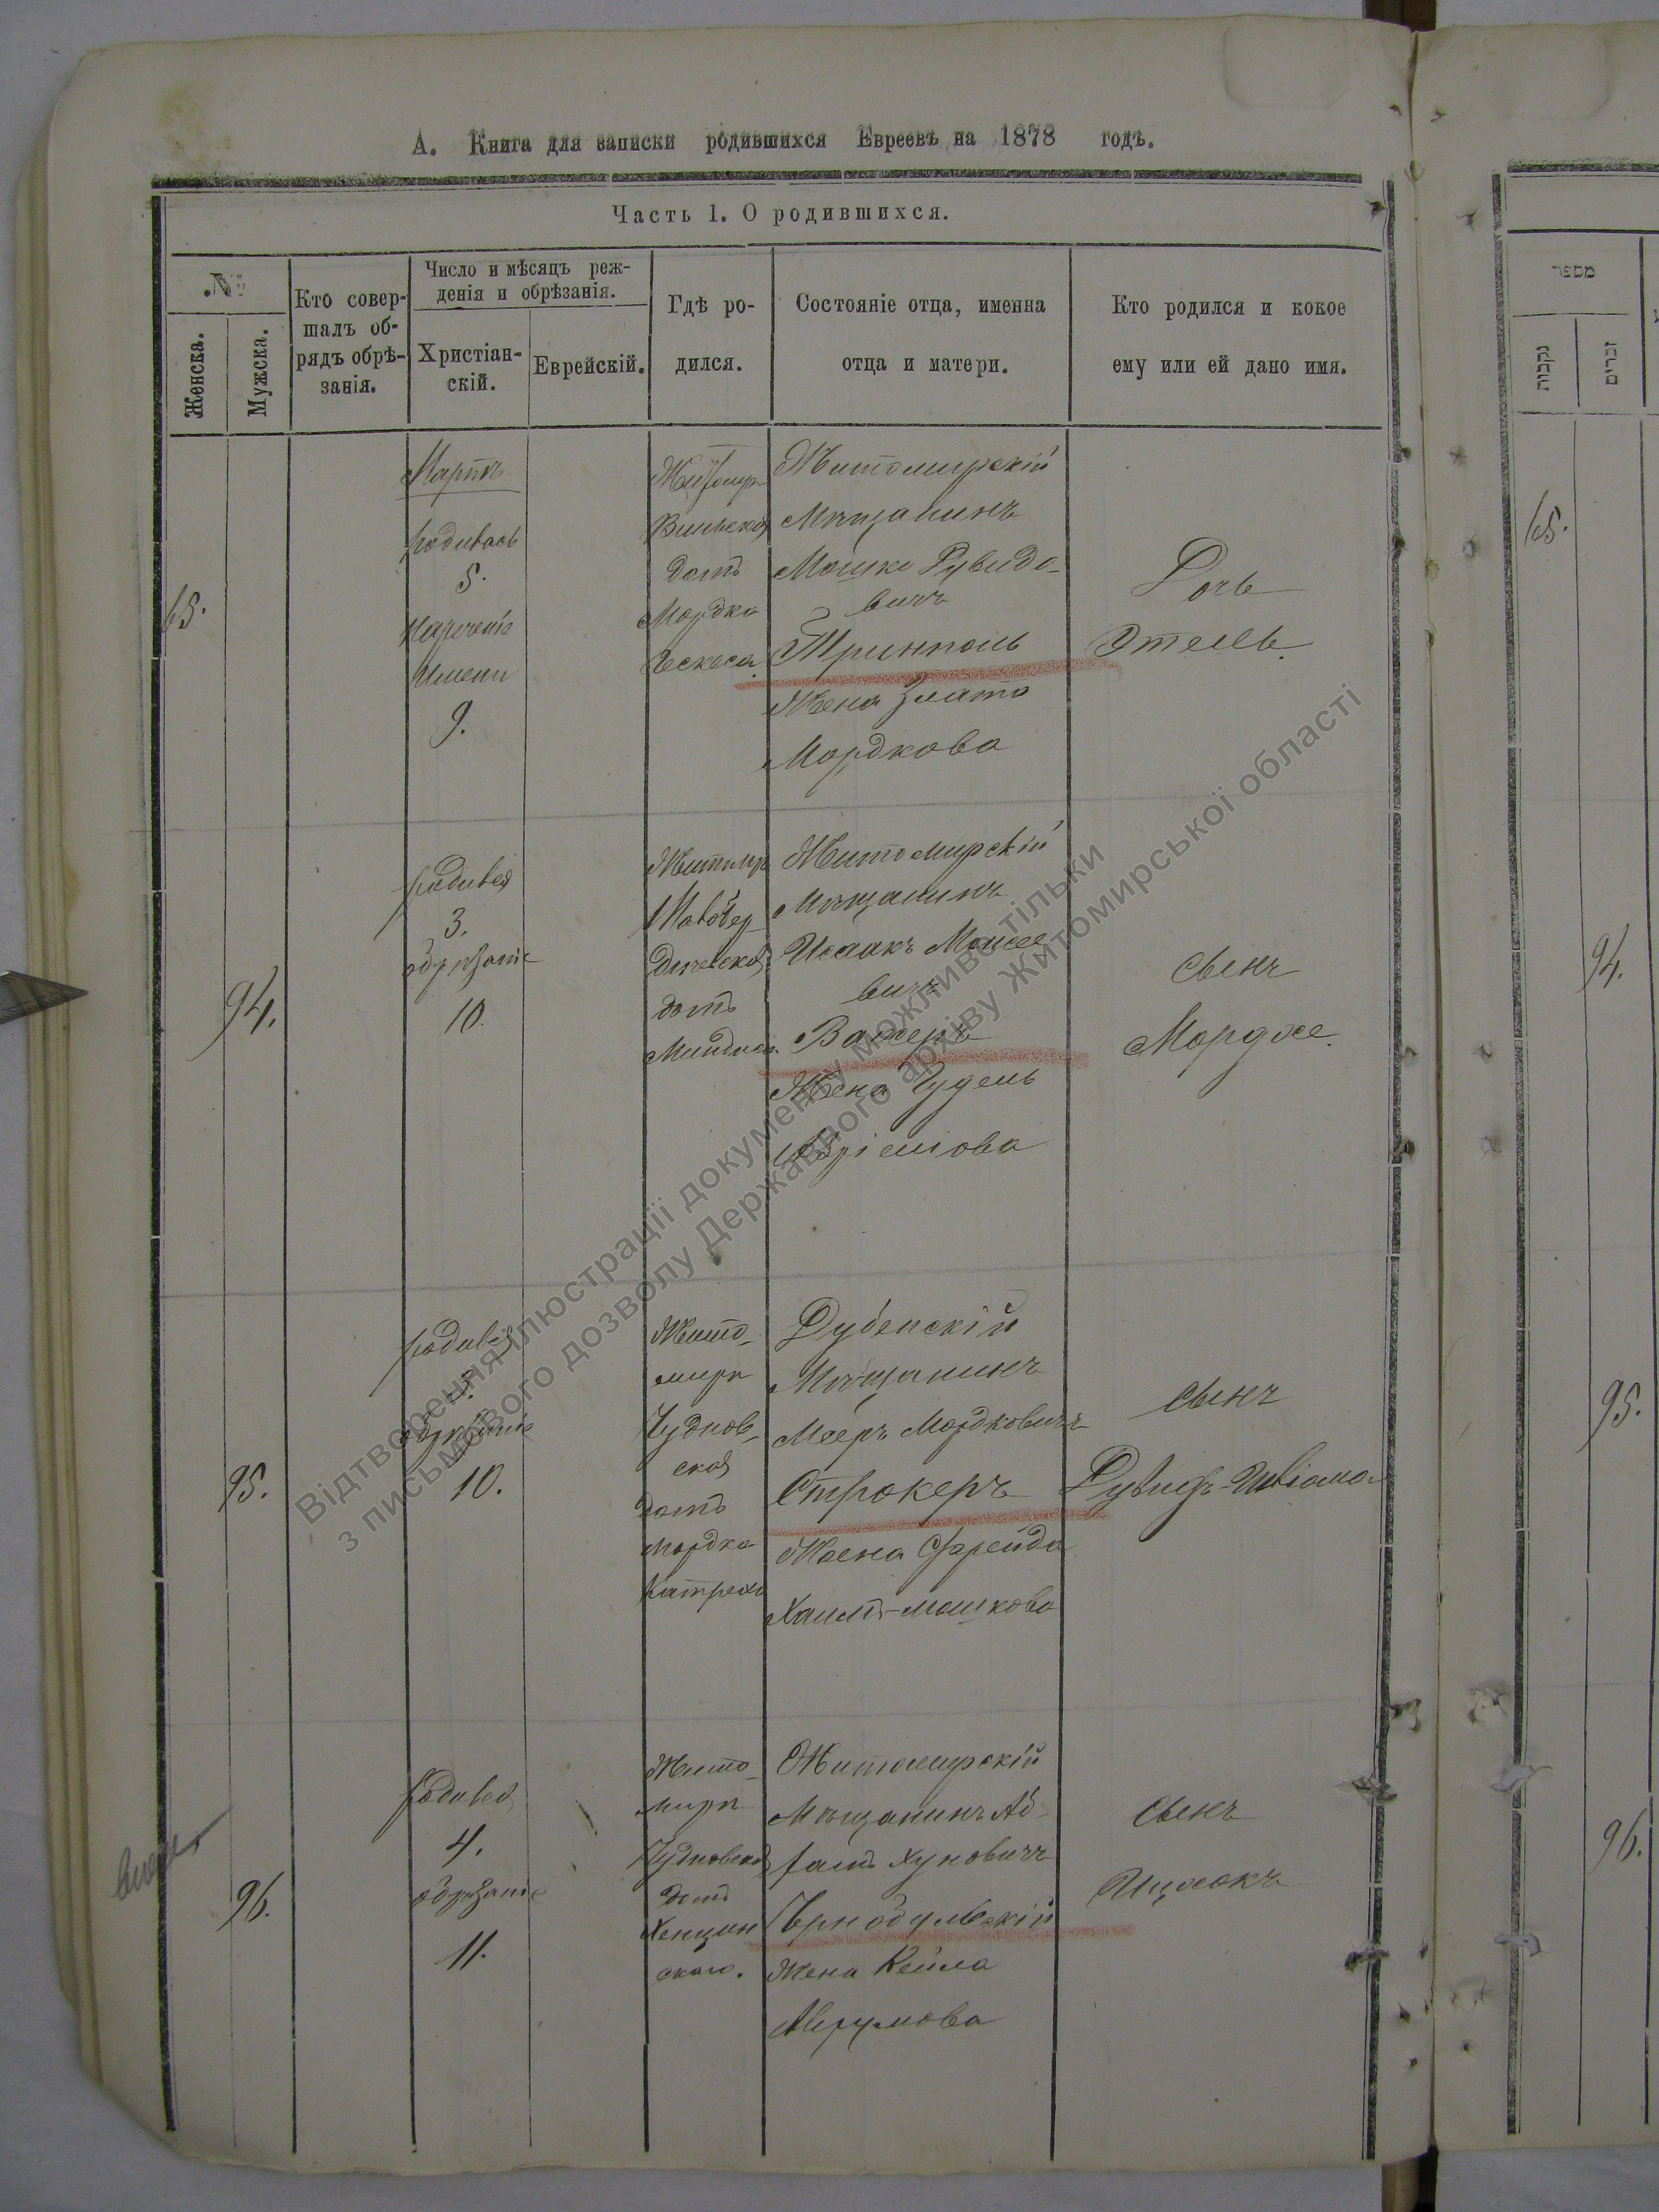 А. Книга для записки родившихся Евреевъ на 1878 годъ.
Часть 1. О родившихся.
№
Женска.
Мужска.
Кто совер-
шалъ об-
рядъ обрѣ-
занія.
Число и мѣсяцъ реж-
денія и обрѣзанія.
Христіан-
скій.
Еврейскій.
Гдѣ ро-
дился.
Состояніе отца, именна
отца и матери.
Кто родился и кокое
ему или ей дано имя.
65.
Мартъ
родилась
5.
наречен
имени
9.
Житомир
Вильская
домъ
Мордка
Житомирскій
Мѣщанинъ
Мошко Рувидо-
вичъ
Тринполь
Жена Злата
Мордкова
Дочь
Этель.
94.
родился
3.
обрѣзаніе
10.
Житомир
Малобер
дичевская
домъ
Житомирскій
Мѣщанинъ
Исаакъ Моисее
вичъ
Вайсеръ
Жена Гудель
сынъ
Мордхе.
95.
родился
3.
обрѣзаніе
10.
Жито-
миръ
Чуднов-
ская
домъ
Мордка
Дубенскій
Мѣщанинъ
Мееръ Мордковичъ
Строкеръ
Жена Фрейда
Хаимъ-Мошкова
сынъ
96.
родился
4.
обрѣзаніе
11.
Жито-
миръ
Чудновская
домъ
Хенцин
скаго.
Житомирскій
Мѣщанинъ Аб-
рамъ Хуновичъ
Жена Кейла
сынъ
Ицхокъ
מספר
נקבות
זכרים
65.
94.
95.
96.
Відтворення ілюстрації документу можливе тільки
з письмового дозволу Державного архіву Житомирської області